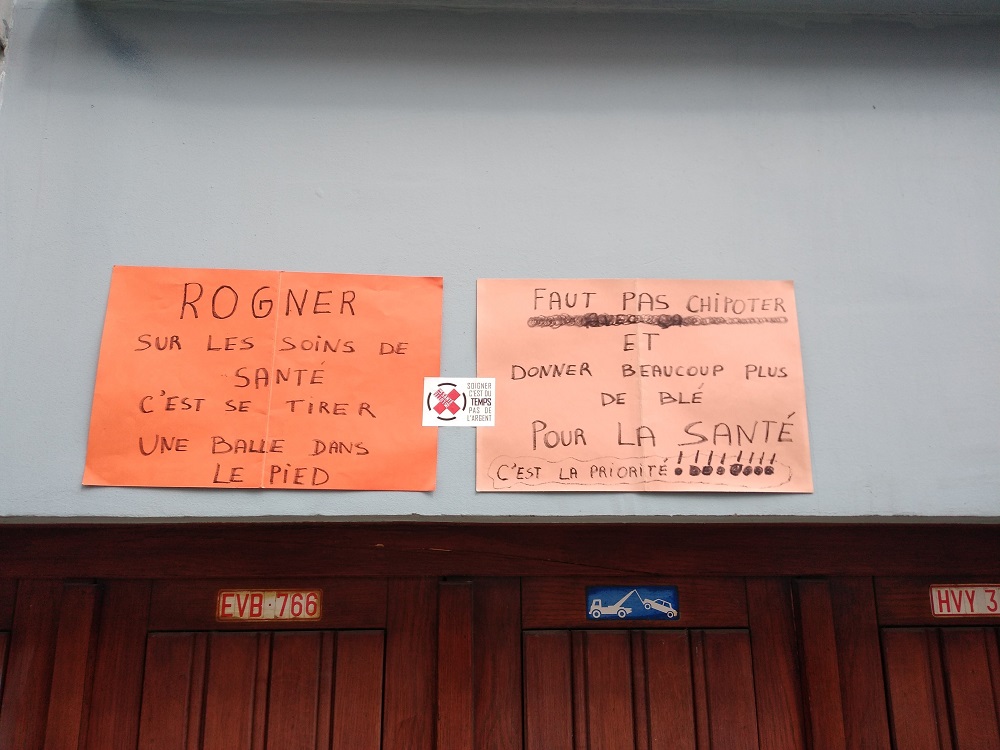 ROGNER
SUR LES SOINS DE
SANTÉ
C'EST SE TIRER
UNE BALLE DANS
LE PIED
SOIGNER
C'EST DU
TEMPS
PAS DE
L'ARGENT
FAUT PAS CHIPOTER
ET
DONNER BEAUCOUP PLUS
DE BLÉ
POUR LA SANTÉ
C'EST LA PRIORITÉ !!!!!!!!!
EVB·766
HVY 3